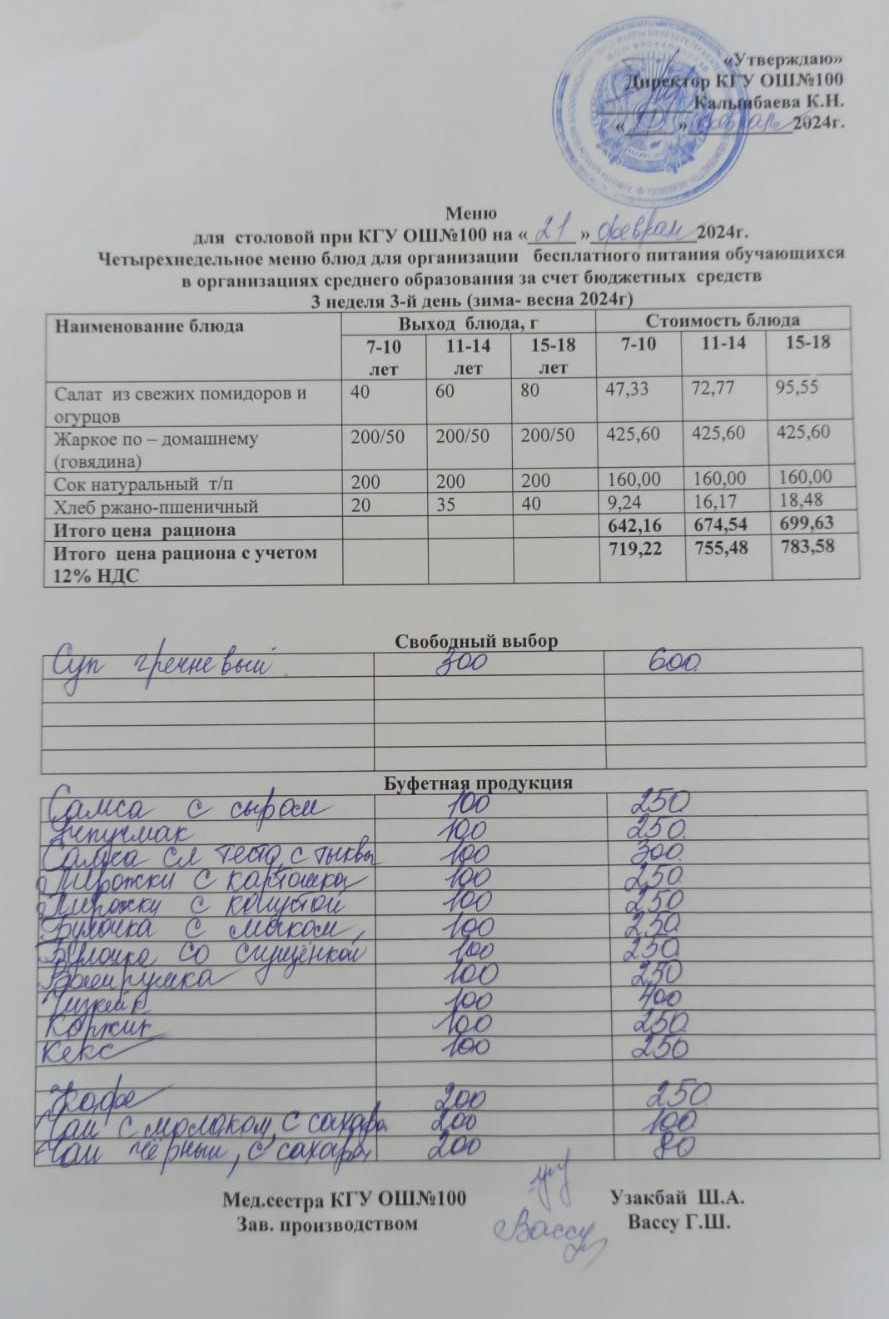 «Утверждаю»
Директор КГУ ОШ№100
Калыбаева К.Н.
« » февраля 2024г.
Меню
для столовой при КГУ ОШ№100 на « 21 » февраля 2024г.
Четырехнедельное меню блюд для организации бесплатного питания обучающихся
в организациях среднего образования за счет бюджетных средств
3 неделя 3-й день (зима- весна 2024г)
Наименование блюда Выход блюда, г Стоимость блюда
7-10 лет 11-14 лет 15-18 лет 7-10 11-14 15-18
Салат из свежих помидоров и огурцов 40 60 80 47,33 72,77 95,55
Жаркое по – домашнему (говядина) 200/50 200/50 200/50 425,60 425,60 425,60
Сок натуральный т/п 200 200 200 160,00 160,00 160,00
Хлеб ржано-пшеничный 20 35 40 9,24 16,17 18,48
Итого цена рациона 642,16 674,54 699,63
Итого цена рациона с учетом 12% НДС 719,22 755,48 783,58
Свободный выбор
Суп гречневый 300 600
Буфетная продукция
Самса с сыром 100 250
Эчпучмак 100 250
Самса сл тесто, с тыквы 100 300
Пирожки с картошкой 100 250
Пирожки с капустой 100 250
Булочка с маком, 100 250
Булочка со сгущёнкой 100 250
Ватрушка 100 250
Чизкейк 100 400
Коржик 100 250
Кекс 100 250
Кофе 200 250
Чай с молоком, с сахаром 200 100
Чай чёрный, с сахаром 200 80
Мед.сестра КГУ ОШ№100 Узакбай Ш.А.
Зав. производством Вассу Вассу Г.Ш.